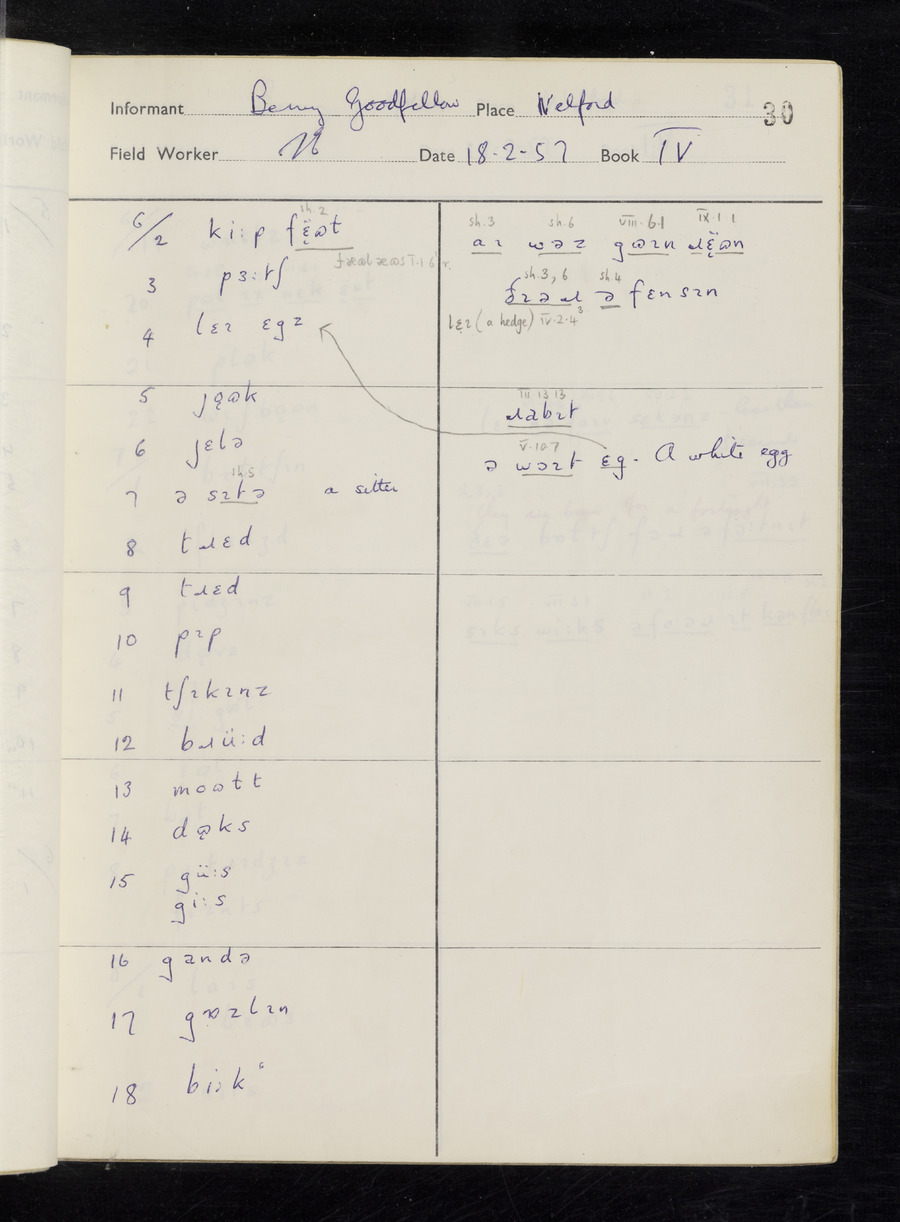 Informant Benny Goodfellow Place Welford 30
Field Worker Date 18-2-57 Book IV
6/2 ki:p
3 pɜ:tʃ
4 lɛɪ ɛgz
5 jɔ̞ʊk
6 jɛlə
7 ə sɪtə a sitter
th.5
8 tɹɛd
9 tɹɛd
10 pɪp
11 tʃɪkɪnz
12 bɹü:d
13 moʊlt
14 dʊ̞ks
15 gü:s
gi:s
16 gandə
17 gɒzlɪn
18 bi:k
sh.3 sh.6 VIII.6.1 IX.1 1
aɪ wəz gʊɪn
sh.3, 6 sh.4
ə fɛnsɪn
lɛ̣ɪ (a hedge) IV.2.4
III 13 13
ɹabɪt
V.10.7
ə wəɪt ɛg. A white egg